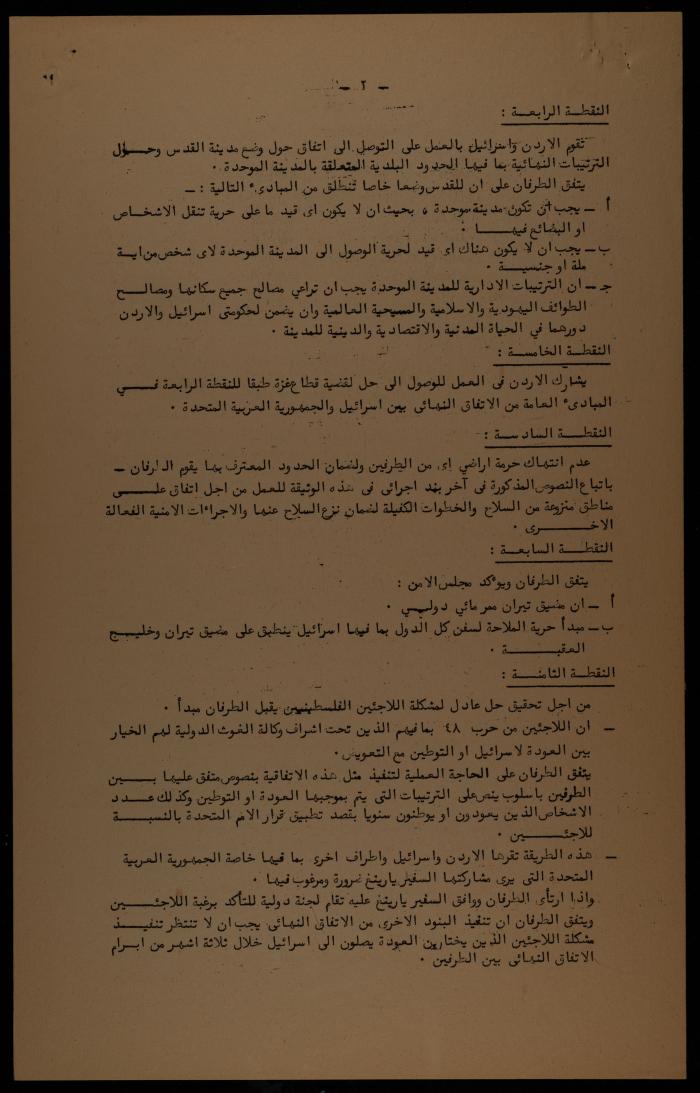 - ٢ -
النقطـة الرابعـة :
تقوم الاردن واسرائيل بالعمل على التوصل الى اتفاق حول وضع مدينة القدس وحـول
الترتيبات النهائية بما فيها الحدود البلدية المتعلقة بالمدينة الموحدة .
يتفق الطرفان على ان للقدس وضعا خاصا تنطلق من المبادىء التالية : -
أ - يجب أن تكون مدينة موحدة ، بحيث ان لا يكون اى قيد ما على حرية تنقل الاشخاص
او البضائع فيهـا .
ب - يجب ان لا يكون هناك اى قيد لحرية الوصول الى المدينة الموحدة لاى شخص من ايـة
ملة او جنسيـة .
جـ - ان الترتيبات الادارية للمدينة الموحدة يجب ان تراعي مصالح جميع سكانها ومصالـح
الطوائف اليهودية والاسلامية والمسيحية العالمية وان يضمن لحكومتى اسرائيل والاردن
دورهما في الحياة المدنية والاقتصادية والدينية للمدينة .
النقطـة الخامسـة :
يشارك الاردن فى العمل للوصول الى حل لقضية قطاع غزة طبقا للنقطة الرابعة فـي
المبادىء العامة من الاتفاق النهائى بين اسرائيل والجمهورية العربية المتحدة .
النقطـة السادسـة :
عدم انتهاك حرمة اراضي اى من الطرفين ولضمان الحدود المعترف بها يقوم الطرفان -
باتباع النصوص المذكورة فى آخر بند اجرائى فى هذه الوثيقة للعمل من اجل اتفاق علـى
مناطق منزوعة من السلاح والخطوات الكفيلة لضمان نزع السلاح عنها والاجراءات الامنية الفعالة
الاخـرى .
النقطـة السابعـة :
يتفق الطرفان ويؤكد مجلس الامن :
أ - ان مضيق تيران ممر مائي دولـي .
ب - مبدأ حرية الملاحة لسفن كل الدول بما فيها اسرائيل ينطبق على مضيق تيران وخليـج
العقبـة .
النقطـة الثامنـة :
من اجل تحقيق حل عادل لمشكلة اللاجئين الفلسطينيين يقبل الطرفان مبدأ .
- ان اللاجئين من حرب ٤٨ بما فيهم الذين تحت اشراف وكالة الغوث الدولية لهم الخيار
بين العودة لاسرائيل او التوطين مع التعويض .
يتفق الطرفان على الحاجة العملية لتنفيذ مثل هذه الاتفاقية بنصوص متفق عليها بـين
الطرفين باسلوب ينص على الترتيبات التى يتم بموجبها العودة او التوطين وكذلك عـدد
الاشخاص الذين يعودون او يوطنون سنويا بقصد تطبيق قرار الامم المتحدة بالنسبـة
للاجئـين .
- هذه الطريقة تقرها الاردن واسرائيل واطراف اخرى بما فيها خاصة الجمهورية العربية
المتحدة التى يرى مشاركتها السفير يارينغ ضرورة ومرغوب فيها .
واذا ارتأى الطرفان ووافق السفير يارينغ عليه تقام لجنة دولية للتأكد برغبة اللاجئـين
ويتفق الطرفان ان تنفيذ البنود الاخرى من الاتفاق النهائى يجب ان لا تنتظر تنفيـذ
مشكلة اللاجئين الذين يختارون العودة يصلون الى اسرائيل خلال ثلاثة اشهر من ابـرام
الاتفاق النهائى بين الطرفين .